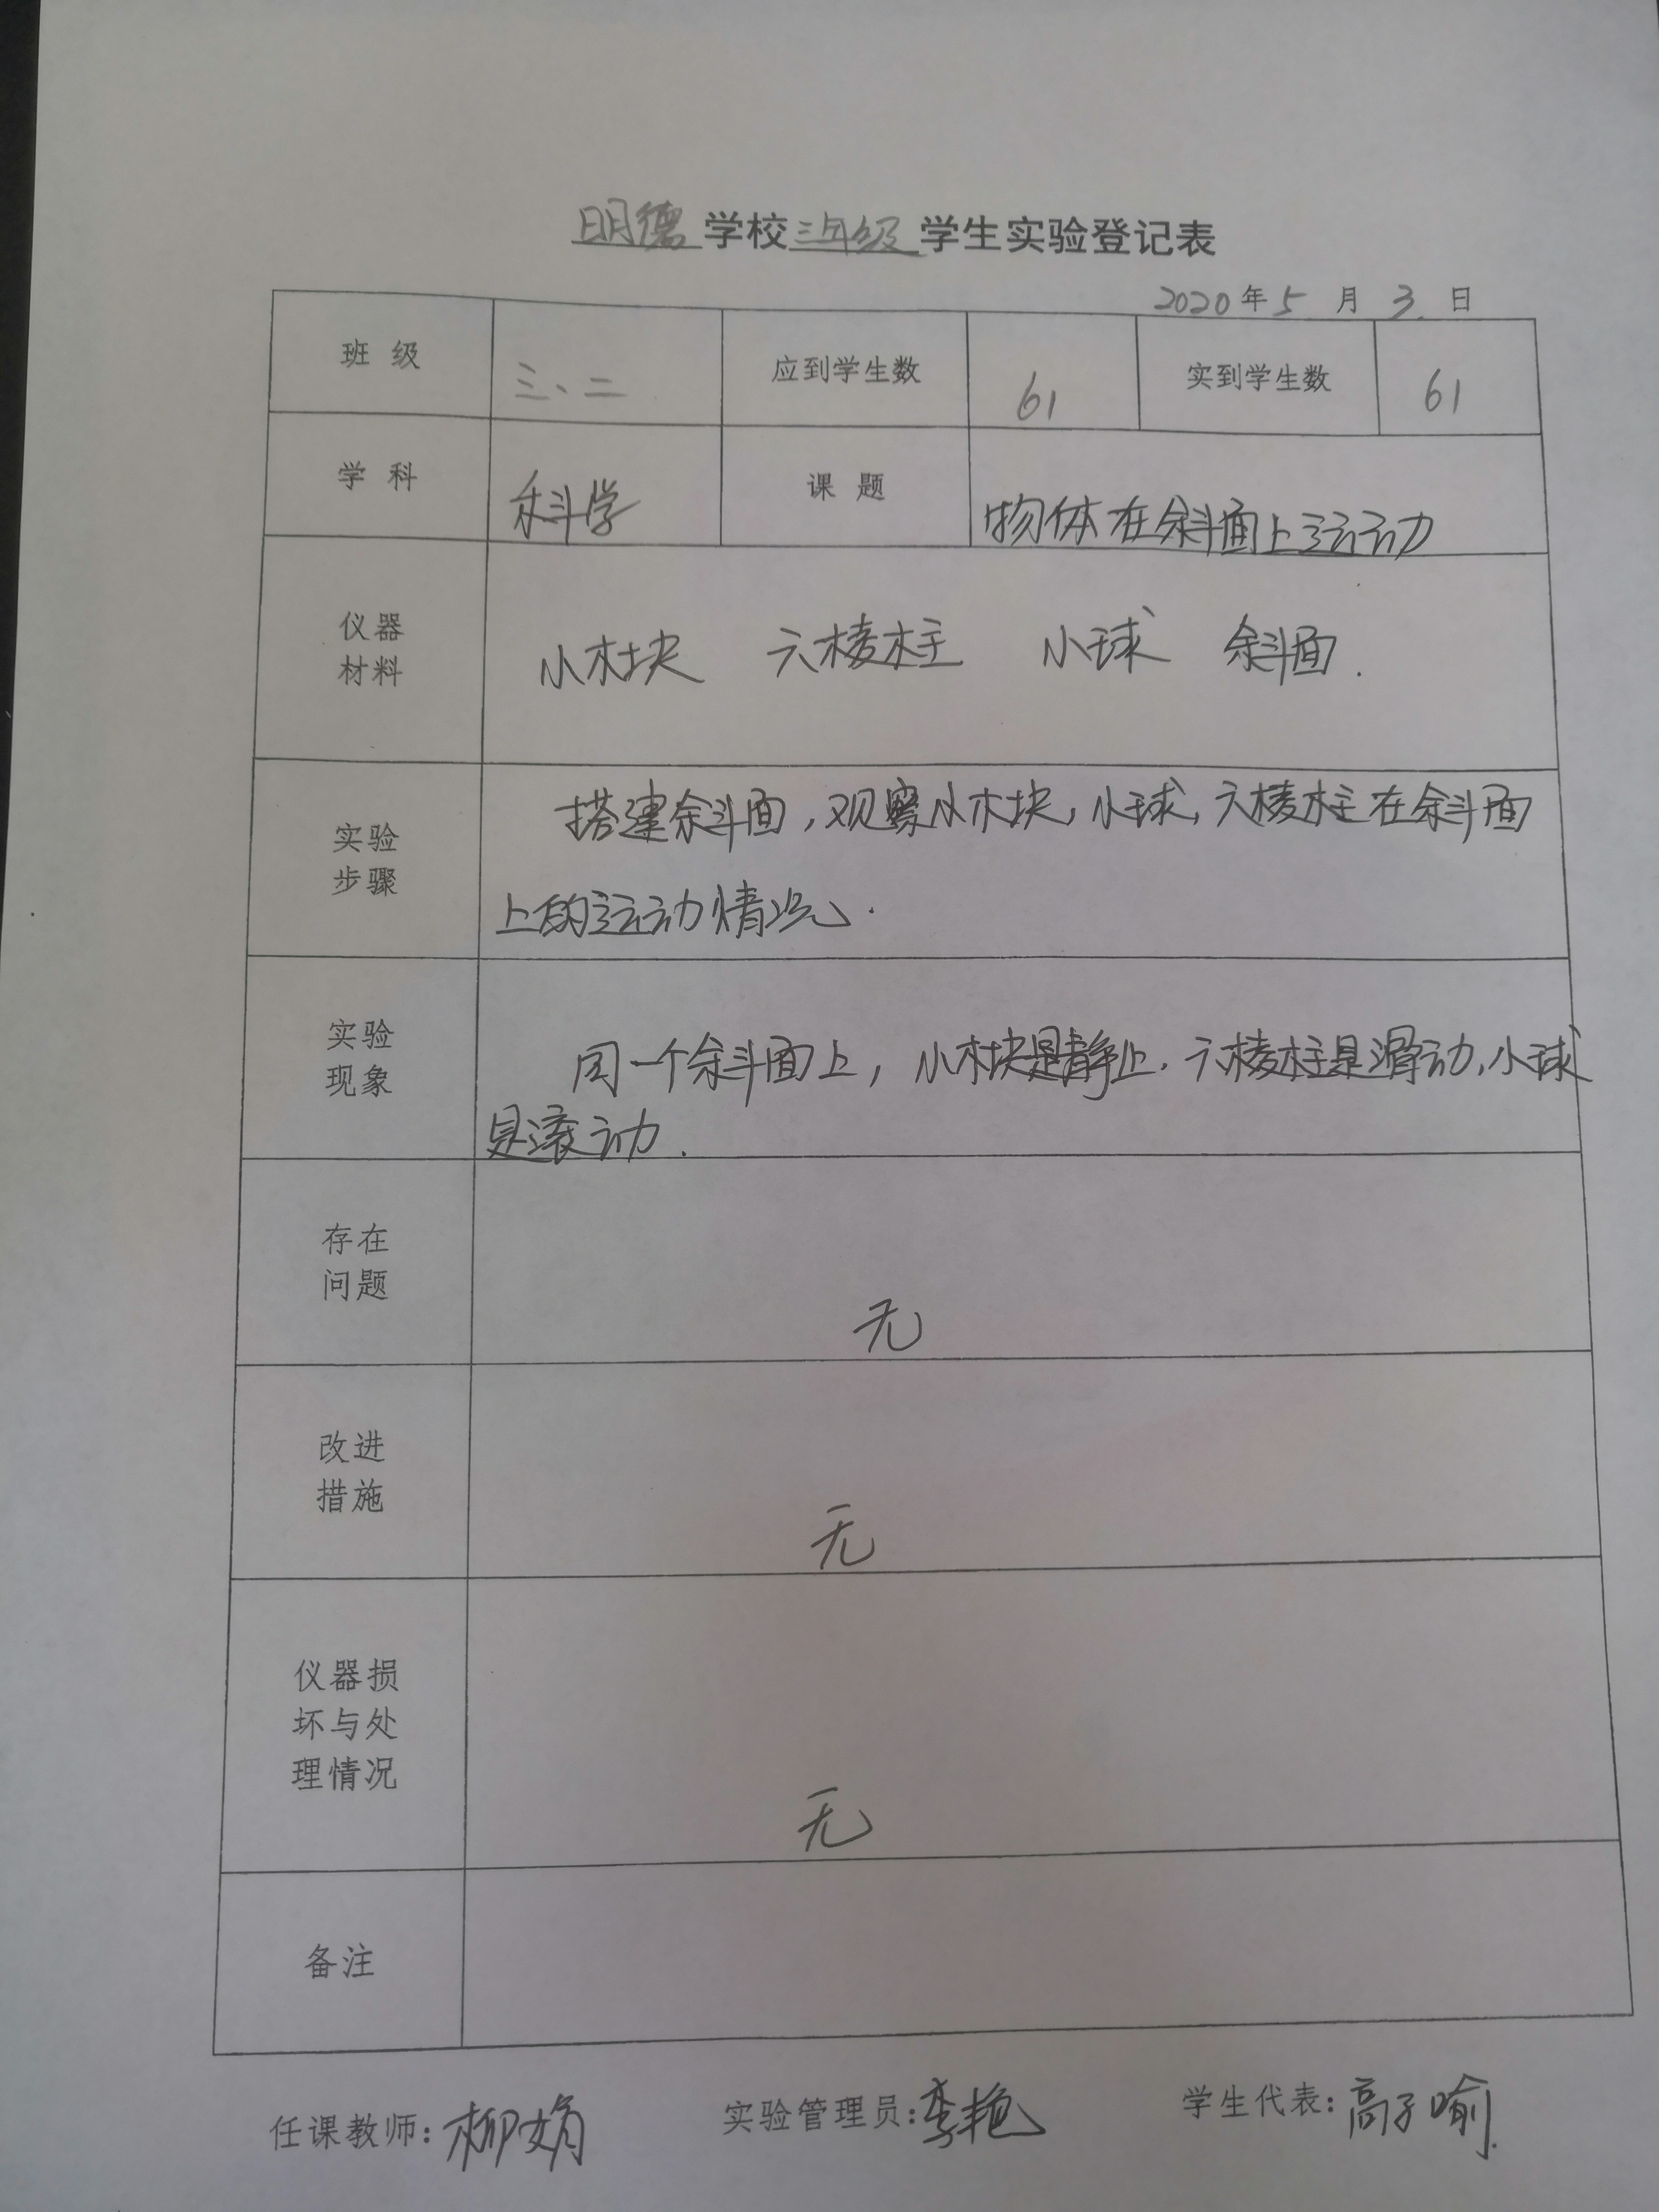 明德学校三年级学生实验登记表
2020年5月3日
班级 三、二 应到学生数 61 实到学生数 61
学科 科学 课题 物体在斜面上运动
仪器
材料
小木块 六棱柱 小球 斜面.
实验
步骤
搭建斜面,观察小木块,小球,六棱柱在斜面
上的运动情况.
实验
现象
同一个斜面上,小木块是静止.六棱柱是滑动,小球
是滚动.
存在
问题
无
改进
措施
无
仪器损
坏与处
理情况
无
备注
任课教师:柳娟 实验管理员:李艳 学生代表:高子喻.